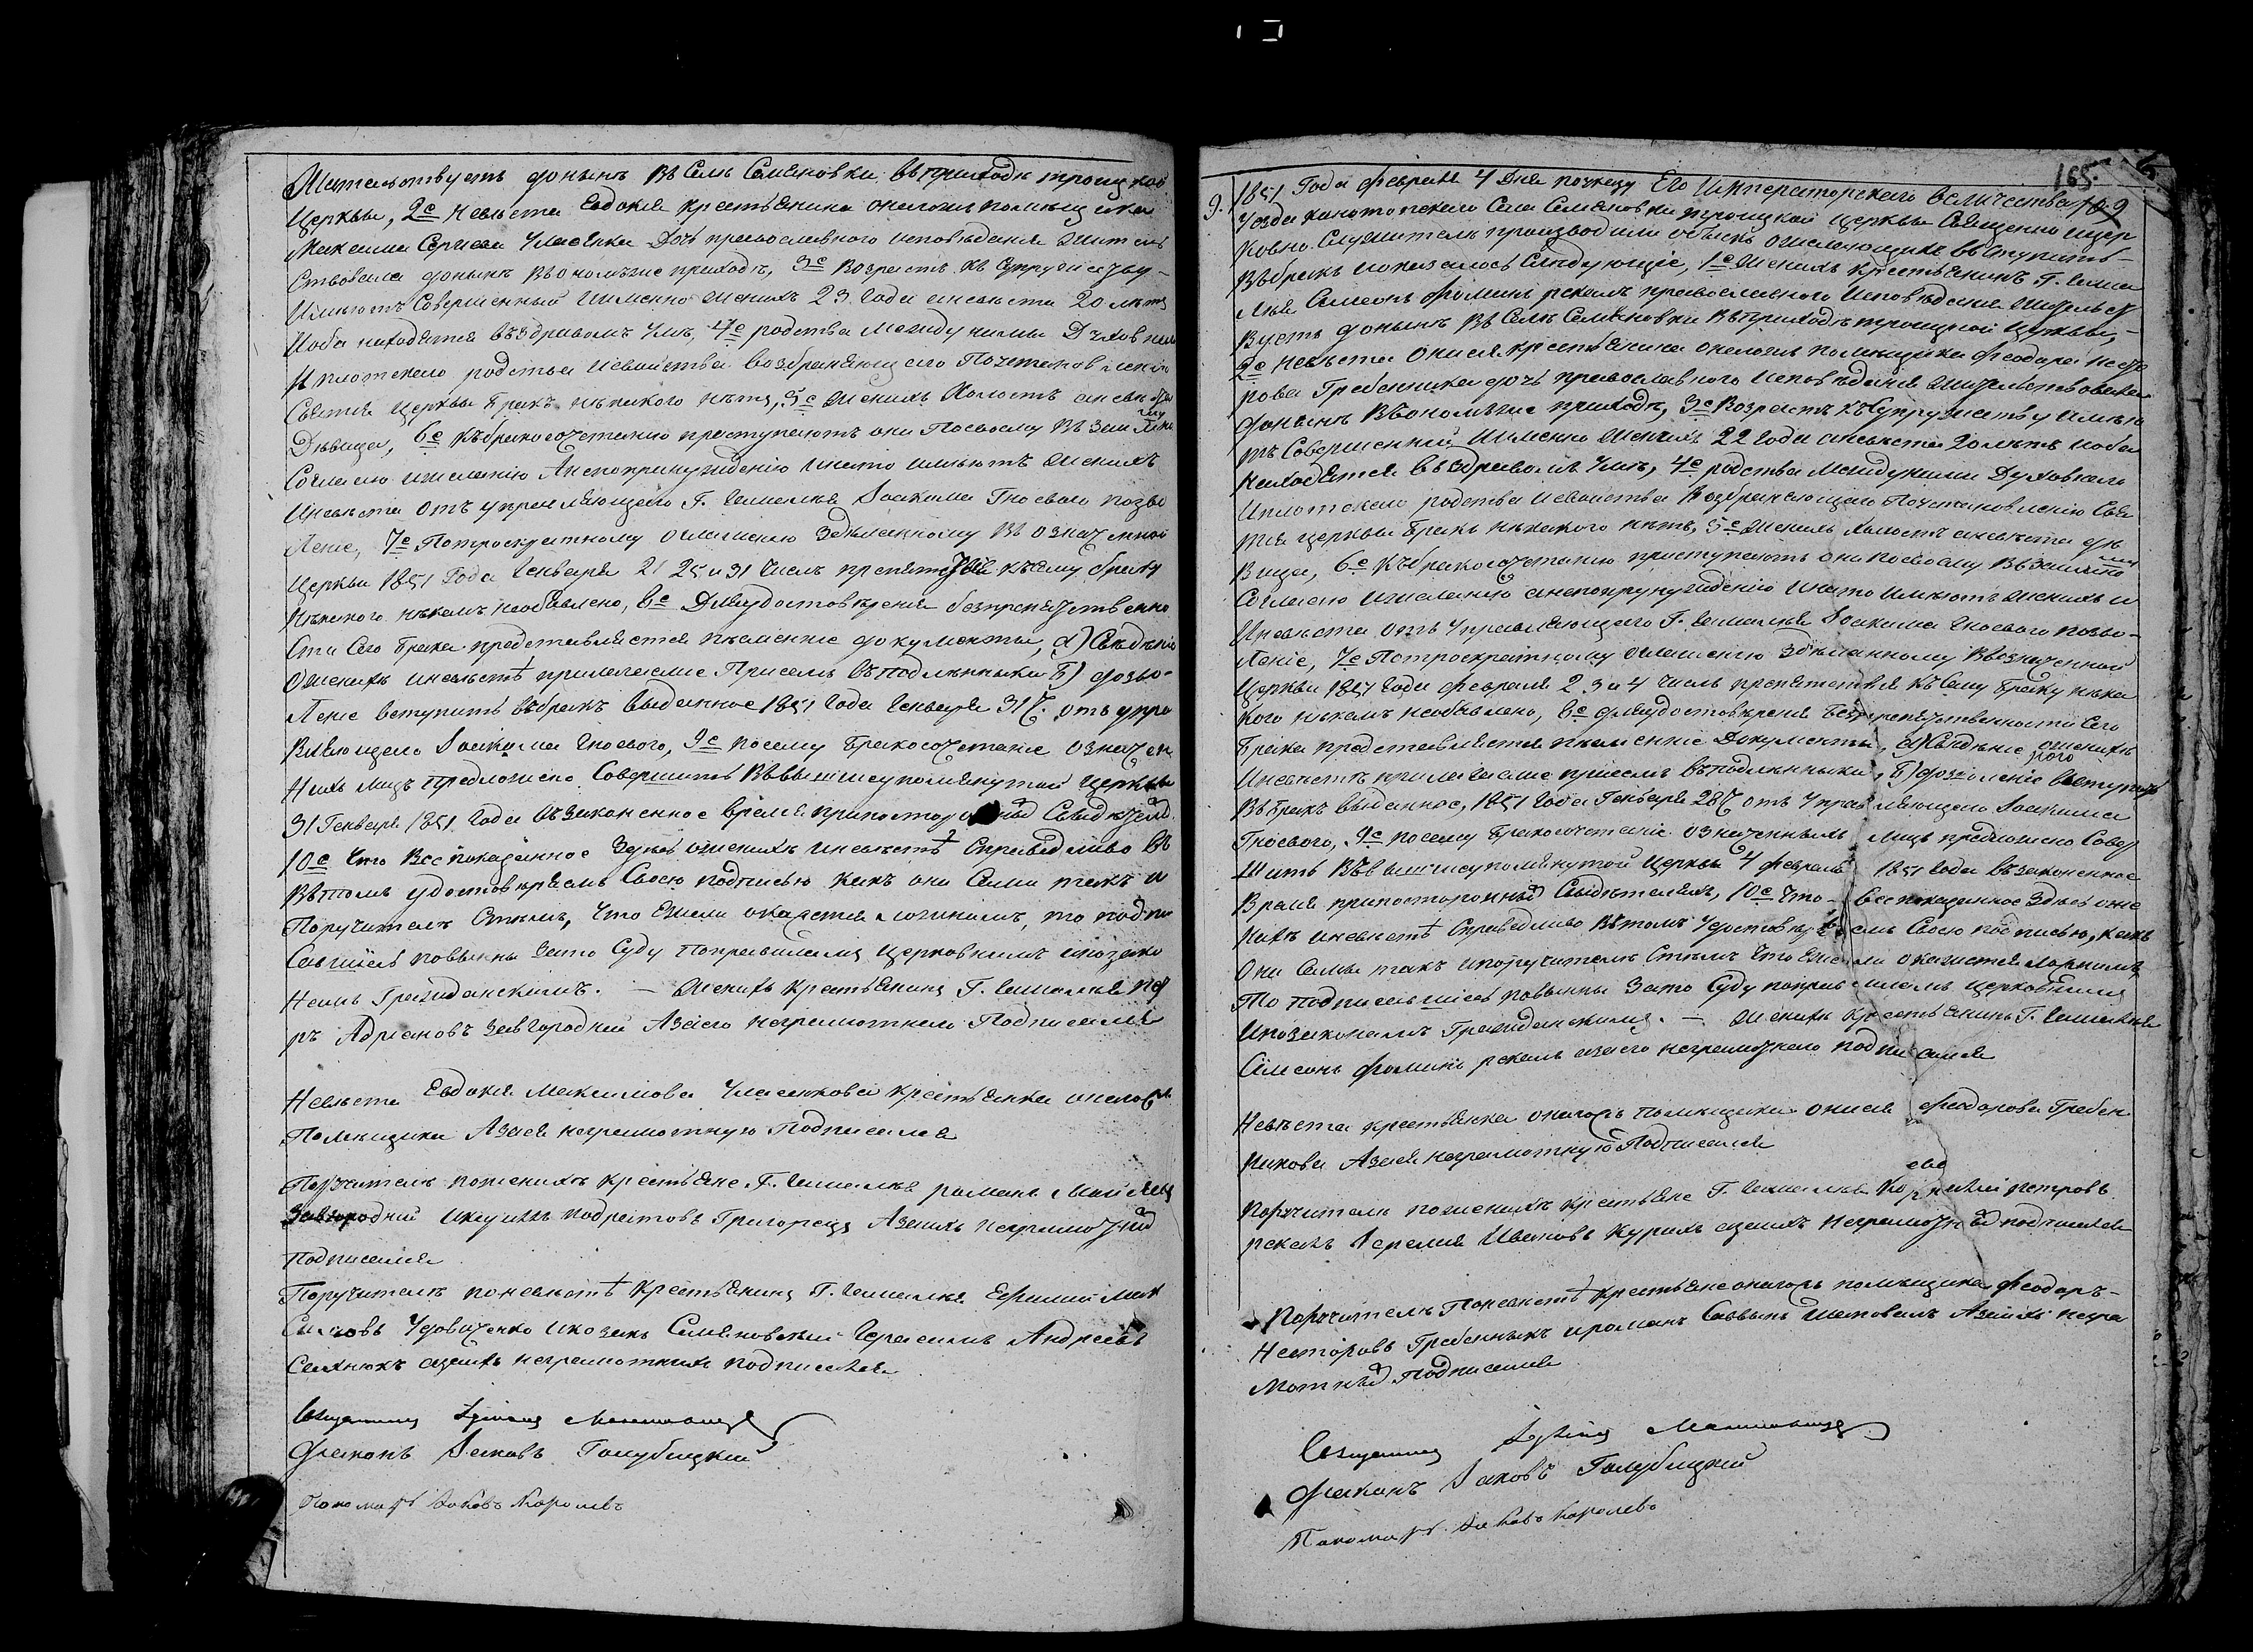 Жительствуетъ донынѣ въ Селѣ Семяновки въ приходѣ троицкой
Церквы, 2е Невѣста Евдокія крестьянина онагожъ помѣщика
Максима Сергиева Дочь православного исповѣданія жител
Ствовала донынѣ въ ономъже приходѣ, 3е Возрастъ къ Супружеству
Имѣютъ Совершенный Именно женихъ 23 года а невѣста 20 лѣтъ
И оба находятся въ здравомъ умѣ, 4е родства между ними Духовнаго
И плотского родства и свойства возбраняющаго По установленію
Святыя Церквы бракъ нѣякого нѣтъ, 5е женихъ Холостъ а невѣста
Дѣвица, 6е Къ бракосочетанію приступаютъ они По своему Взаимному
Согласію и желанію А не по принужденію и на то имѣютъ женихъ
И невѣста отъ управляющаго Г. Іоакима Гноеваго позво
леніе, 7е По троекратному оглашенію Здѣланному Въ означенной
Церквы 1851 Года Генваря 21 25 и 31 Числъ препятствія къ сему браку
Нѣякого нѣкемъ необявлено, 8е Для удостовѣренія безпрепятственно
сти Сего брака представляются писменніе документы, а) Свѣдѣніе
О женихѣ и невѣстѣ прилагаемое При семъ въ подлѣнныки б) дозво-
леніе вступить въ бракъ выданное 1851 года Генваря 31 ч. отъ упра
вляющаго Іоакима Гноевого, 9е посему бракосочетаніе означен
ныхъ лицъ предложено Совершить Въ Вышеупомянутой Церквы
31 Генваря 1851 года въ законенное время при постороннѣй Свидѣтелей
10е Что Все показанное Здѣсь о женихѣ и невѣстѣ Справедливо въ
Вътомъ удостовѣряемъ Своею подписью какъ они Сами такъ и
Поручителѣ Стѣмъ, что Ежели окажется ложнимъ, то подпи
Савшіесь повынны Зато Суду По правиламъ Церковнымъ и по зако
намъ Гражданскимъ. — Женихъ крестьянинъ Г.
ръ Адріановъ Завгородній Азаего неграмотнаго Подписался
Невѣста Евдокія Максимова крестьянка онагожъ
Помѣщика Азаея неграмотную Подписался
Поручителѣ по женихѣ крестьяне Г. романъ
Завгородній Григорець Азаихъ неграмотнѣй
Подписался
Поручителѣ по невѣстѣ крестьянинъ Г. Ефимій Мак
Симовъ Удовиченко и козакъ Семяновскій Герасимъ Андреевъ
Селнюкъ азаихъ неграмотныхъ подписался
Священникъ
Діаконъ Іаковъ Голубицкій
Пономарь Іаковъ Королевъ
165
9. 1851 Года февраля 4 Дня по указу Его Императорского величества
Уезда канотопского Села Семяновки троицкой Церквы Священно и цер
ковно Служителѣ производили обыскъ о желающихъ вступить
въ бракъ и оказалось Слѣдующіе, 1е женихъ крестьянинъ Г.
Симеонъ Фоминъ рекалъ православного исповѣданія жительст
вуетъ донынѣ въ Селѣ Семяновки въ приходѣ троицкой Церквы,
2е невѣста Онисія крестьянина онагожъ помѣщика Феодора Несто
рова Гребенника дочь православного исповѣданія жительствовала
донынѣ въ ономъже приходѣ, 3е Возрастъ къ Супружеству имѣю
тъ Совершенній Именно женихъ 22 года а невѣста 20 лѣтъ и оба
находятся въ здравомъ умѣ, 4е родства между ними Духовнаго
И плотского родства и свойства Возбраняющаго По установленію Свя
тія Церквы бракъ нѣякого нѣтъ, 5е женихъ холостъ а невѣста дѣ
вица, 6е Къ бракосочетанію приступаютъ они по своему Взаимно
Согласію и желанію а не по прунужденію и на то имѣютъ женихъ и
И невѣста отъ Управляющаго Г. Іоакима Гноевого позво-
леніе, 7е По троекратному оглашенію Здѣланному Въ означенной
Церквы 1851 Года февраля 2 3 и 4 числъ препятствія къ Сему браку нѣя
кого нѣкемъ необявлено, 8е Для удостовѣренія безпрепятственности Сего
брака представляются писменніе Документы, а) Свѣденіе о женихѣ
И невѣстѣ прилагаемое при семъ въ подлѣнныки, б) дозволеніе вступить
Въ бракъ выданное, 1851 года Генваря 28 ч отъ Управляющаго Іоакима
Гноевого, 9е посему бракосочетаніе означеннымъ лицъ предложено Совер
шить Въ Вышеупомянутой Церквы 4 февраля 1851 года въ законенное
Время при постороннѣй Свидѣтелямъ, 10е Что Все показанное Здѣсь о же
нихѣ и невѣстѣ Справедливо Вътомъ Удостовѣряемъ Своею подписью, какъ
Они Самы такъ и поручителѣ Стѣмъ Что Ежели окажется ложнимъ
То подписавшіесь повынны Зато Суду по правиламъ Церковнымъ
И по законамъ Гражданскимъ. — женихъ крестьянинъ Г.
Симеонъ Фоминъ рекалъ азаего неграмотнаго подписался
Невѣста крестьянка онагожъ помѣщика Онисія Феодорова Гребен
никова Азаея неграмотную Подписался
Поручителѣ по женихѣ крестьяне Г. Корнилій петровъ
рекалъ Іеремія Ивановъ Курихъ азаихъ неграмотнѣй подписался
Поручителѣ По невѣстѣ крестьяне онагожъ помѣщика Феодоръ
Несторовъ Гребенныкъ и романъ Саввынъ Шаповалъ Азаихъ негра
мотнѣй Подписался
Священникъ
Діаконъ Іаковъ Голубицкій
Пономарь Іаковъ Королевъ